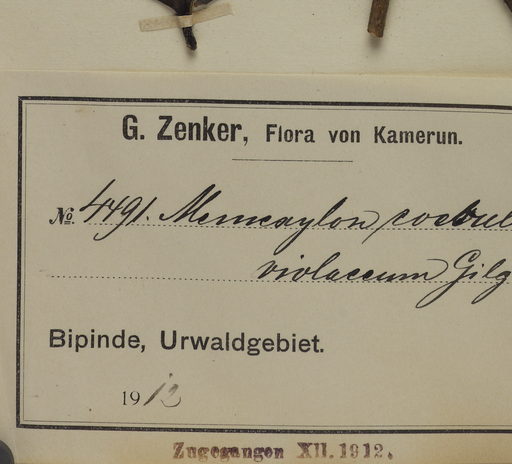 G. Zenker, Flora von Kamerun.
No. 4491. Memecylon
violaceum Gilg
Bipinde, Urwaldgebiet.
1912
Zugegangen XII. 1912.